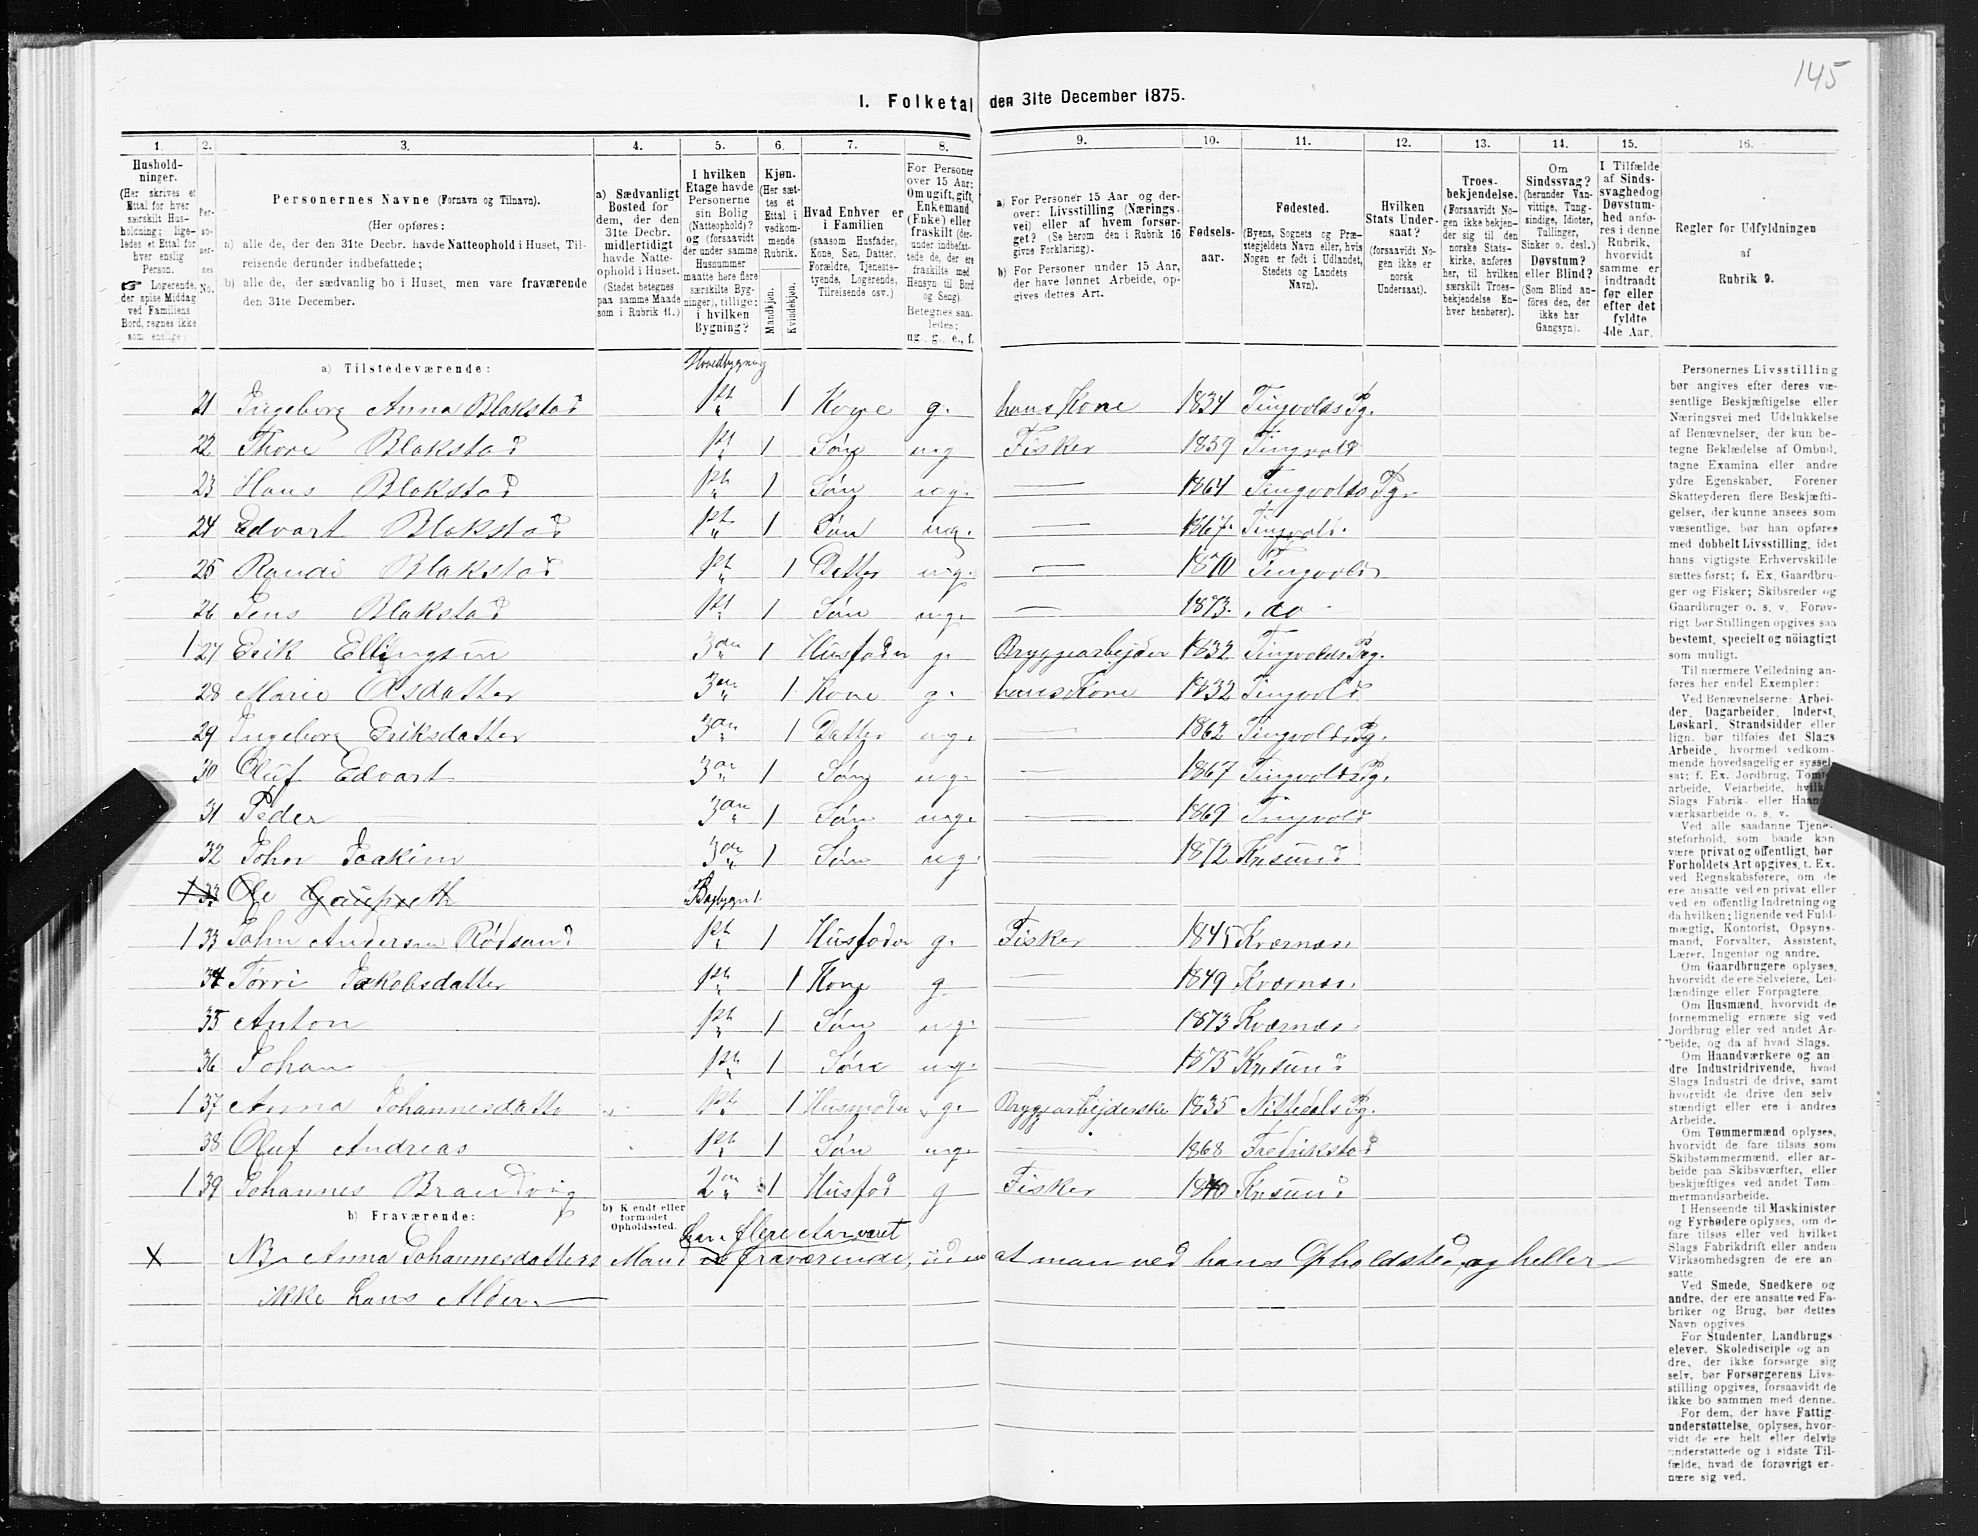 145
I. Folketal den 31te December 1875.
1. 2. 3. 4. 5. 6. 7. 8. 9. 10. 11. 12. 13. 14. 15. 16.
Husholdninger.
(Her skrives et Ettal for hver særskilt Husholdning; ligeledes et Ettal for hver enslig Person.
☞ Logerende, der spise Middag ved Familiens Bord, regnes ikke som enslige.)
Personernes No.
Personernes Navne (Fornavn og Tilnavn).
(Her opføres:
a) alle de, der den 31te Decbr. havde Natteophold i Huset, Tilreisende derunder indbefattede;
b) alle de, der sædvanlig bo i Huset, men vare fraværende den 31te December.
a) Sædvanligt Bosted for dem, der den 31te Decbr. midlertidigt havde Natteophold i Huset.
(Stedet betegnes paa samme Maade som i Rubrik 11.)
I hvilken Etage havde Personerne sin Bolig (Natteophold)? og (forsaavidt der under samme Husnummer maatte høre flere særskilte Bygninger), tillige: i hvilken Bygning?
Kjøn.
(Her sættes et Ettal i vedkommende Rubrik.
Mandkjøn.
Kvindekjøn.
Hvad Enhver er i Familien
(saasom Husfader, Kone, Søn, Datter, Forældre, Tjenestetyende, Logerende, Tilreisende osv.)
For Personer over 15 Aar: Om ugift, gift, Enkemand (Enke) eller fraskilt (derunder indbefattede de, der ere fraskilte med Hensyn til Bord og Seng).
Betegnes saaledes: ug., g., e., f.
a) For Personer 15 Aar og derover: Livsstilling (Næringsvei) eller af hvem forsørget? (Se herom den i Rubrik 16 givne Forklaring).
b) For Personer under 15 Aar, der have lønnet Arbeide, opgives dettes Art.
Fødselsaar.
Fødested.
(Byens, Sognets og Præstegjeldets Navn eller, hvis Nogen er født i Udlandet, Stedets og Landets Navn).
Hvilken Stats Undersaat?
(forsaavidt Nogen ikke er norsk Undersaat).
Troesbekjendelse.
(Forsaavidt Nogen ikke bekjender sig til den norske Statskirke, anføres her, til hvilken særskilt Troesbekjendelse Enhver henhører).
Om Sindssvag? (herunder Vanvittige, Tungsindige, Idioter, Tullinger, Sinker o. desl.) Døvstum? eller Blind? (Som Blind anføres den, der ikke har Gangsyn).
I Tilfælde af Sindssvaghed og Døvstumhed anføres i denne Rubrik, hvorvidt samme er indtraadt før eller efter det fyldte 4de Aar.
Regler for Udfyldningen af Rubrik 9.
a) Tilstedeværende: Hovedbygning
21 Ingeborg Anna Blakstad 1ste 1 Kone g. hans Kone 1834 Tingvolds Pg.
22 Thore Blakstad 1ste 1 Søn ug Fisker 1859 Tingvold
23 Hans Blakstad 1ste 1 Søn ug. — 1864 Tingvolds Pg.
24 Edvart Blakstad 1ste 1 Søn ug. — 1867. Tingvold.
25 Randi Blakstad 1ste 1 Datter ug. — 1870 Tingvold
26 Jens Blakstad 1ste 1 Søn ug. — 1873. do
1 27 Erik Ellingsen 3die 1 Husfader g. Bryggearbejder 1832 Tingvolds Pg.
28 Marie Olsdatter 3die 1 Kone g. hans Kone 1832 Tingvold
29 Ingeborg Eriksdatter 3die 1 Datter ug. — 1862 Tingvolds Pg.
30 Oluf Edvart 3die 1 Søn ug. — 1867 Tingvolds Pg.
31 Peder 3die 1 Søn ug. — 1869 Tingvold
32 John Joakim 3die 1 Søn ug. 1872 Krsund
1 33 Ole Bagbygn.
1 33 John Andersen Rødsand 1ste 1 Husfader g. Fisker 1845 Kværnæs.
34 Tørri Jakobsdatter 1ste 1 Kone g. — 1849 Kværnæs.
35 Anton 1ste 1 Søn ug. — 1873 Kværnæs.
36 Johan 1ste 1 Søn ug. — 1875 Krsund
1 37 Anna Johannesdatter 1ste 1 Husmoder g. Bryggearbejderske 1835 Nittedals Pg.
38 Oluf Andreas 1ste 1 Søn ug. — 1868 Fredrikstad
1 39 Johannes Brandvig 2den 1 Husfad g Fisker 1840 Krsund
b) Fraværende:
b) Kjendt eller formodet Opholdssted.
har i flere Aar været
X NB. Anna Johannesdatters Mand fraværende, uden at man ved hans Opholdsted, og heller
ikke hans Alder.
Personernes Livsstilling
bør angives efter deres væ-
sentlige Beskjæftigelse eller
Næringsvei med Udelukkelse
af Benævnelser, der kun be-
tegne Beklædelse af Ombud,
tagne Examina eller andre
ydre Egenskaber. Forener
Skatteyderen flere Beskjæfti-
gelser, der kunne ansees som
væsentlige, bør han opføres
med dobbelt Livsstilling, idet
hans vigtigste Erhvervskilde
sættes først; f. Ex. Gaardbru-
ger og Fisker; Skibsreder og
Gaardbruger o. s. v. Forøv-
rigt bør Stillingen opgives saa
bestemt, specielt og nöiagtigt
som muligt.
Til nærmere Veiledning an-
føres her endel Exempler:
Ved Benævnelserne: Arbei-
der, Dagarbeider, Inderst,
Løskarl, Strandsidder eller
lign. bør tilføies det Slags
Arbeide, hvormed vedkom-
mende hovedsagelig er syssel-
sat; f. Ex. Jordbrug, Tømmer-
arbeide, Veiarbeide, hvilket
Slags Fabrik- eller Haand-
værksarbeide o. s. v.
Ved alle saadanne Tjene-
steforhold, som baade kan
være privat og offentligt, bør
Forholdets Art opgives, f. Ex.
ved Regnskabsførere, om de
ere ansatte ved en privat eller
ved en offentlig Indretning og
da hvilken; lignende ved Fuld-
mægtig, Kontorist, Opsyns-
mand, Forvalter, Assistent,
Lærer, Ingeniør og andre.
Om Gaardbrugere oplyses,
hvorvidt de ere Selveiere, Lei-
lændinge eller Forpagtere.
Om Husmænd, hvorvidt de
fornemmelig ernære sig ved
Jordbrug eller ved andet Ar-
beide, og da af hvad Slags.
Om Haandværkere og an-
dre Industridrivende, hvad
Slags Industri de drive, samt
hvorvidt de drive den selv-
stændigt eller ere i andres
Arbeide.
Om Tømmermænd oplyses,
hvorvidt de fare tilsøs som
Skibstømmermænd, eller ar-
beide paa Skibsværfter, eller
beskjæftiges ved andet Tøm-
mermandsarbeide.
I Henseende til Maskinister
og Fyrbødere oplyses, om de
fare tilsøs eller ved hvilket
Slags Fabrikdrift eller anden
Virksomhedsgren de ere an-
satte.
Ved Smede, Snedkere og
andre, der ere ansatte ved Fa-
briker og Brug, bør dettes
Navn opgives.
For Studenter, Landbrugs-
elever, Skoledisciple og an-
dre, der ikke forsørge sig
selv, bør Forsørgerens Livs-
stilling opgives, forsaavidt de
ikke bo sammen med denne.
For dem, der have Fattig-
understøttelse, oplyses, hvor-
vidt de ere helt eller delvis
understøttede og i sidste Til-
fælde, hvad de forøvrigt er-
nære sig ved.